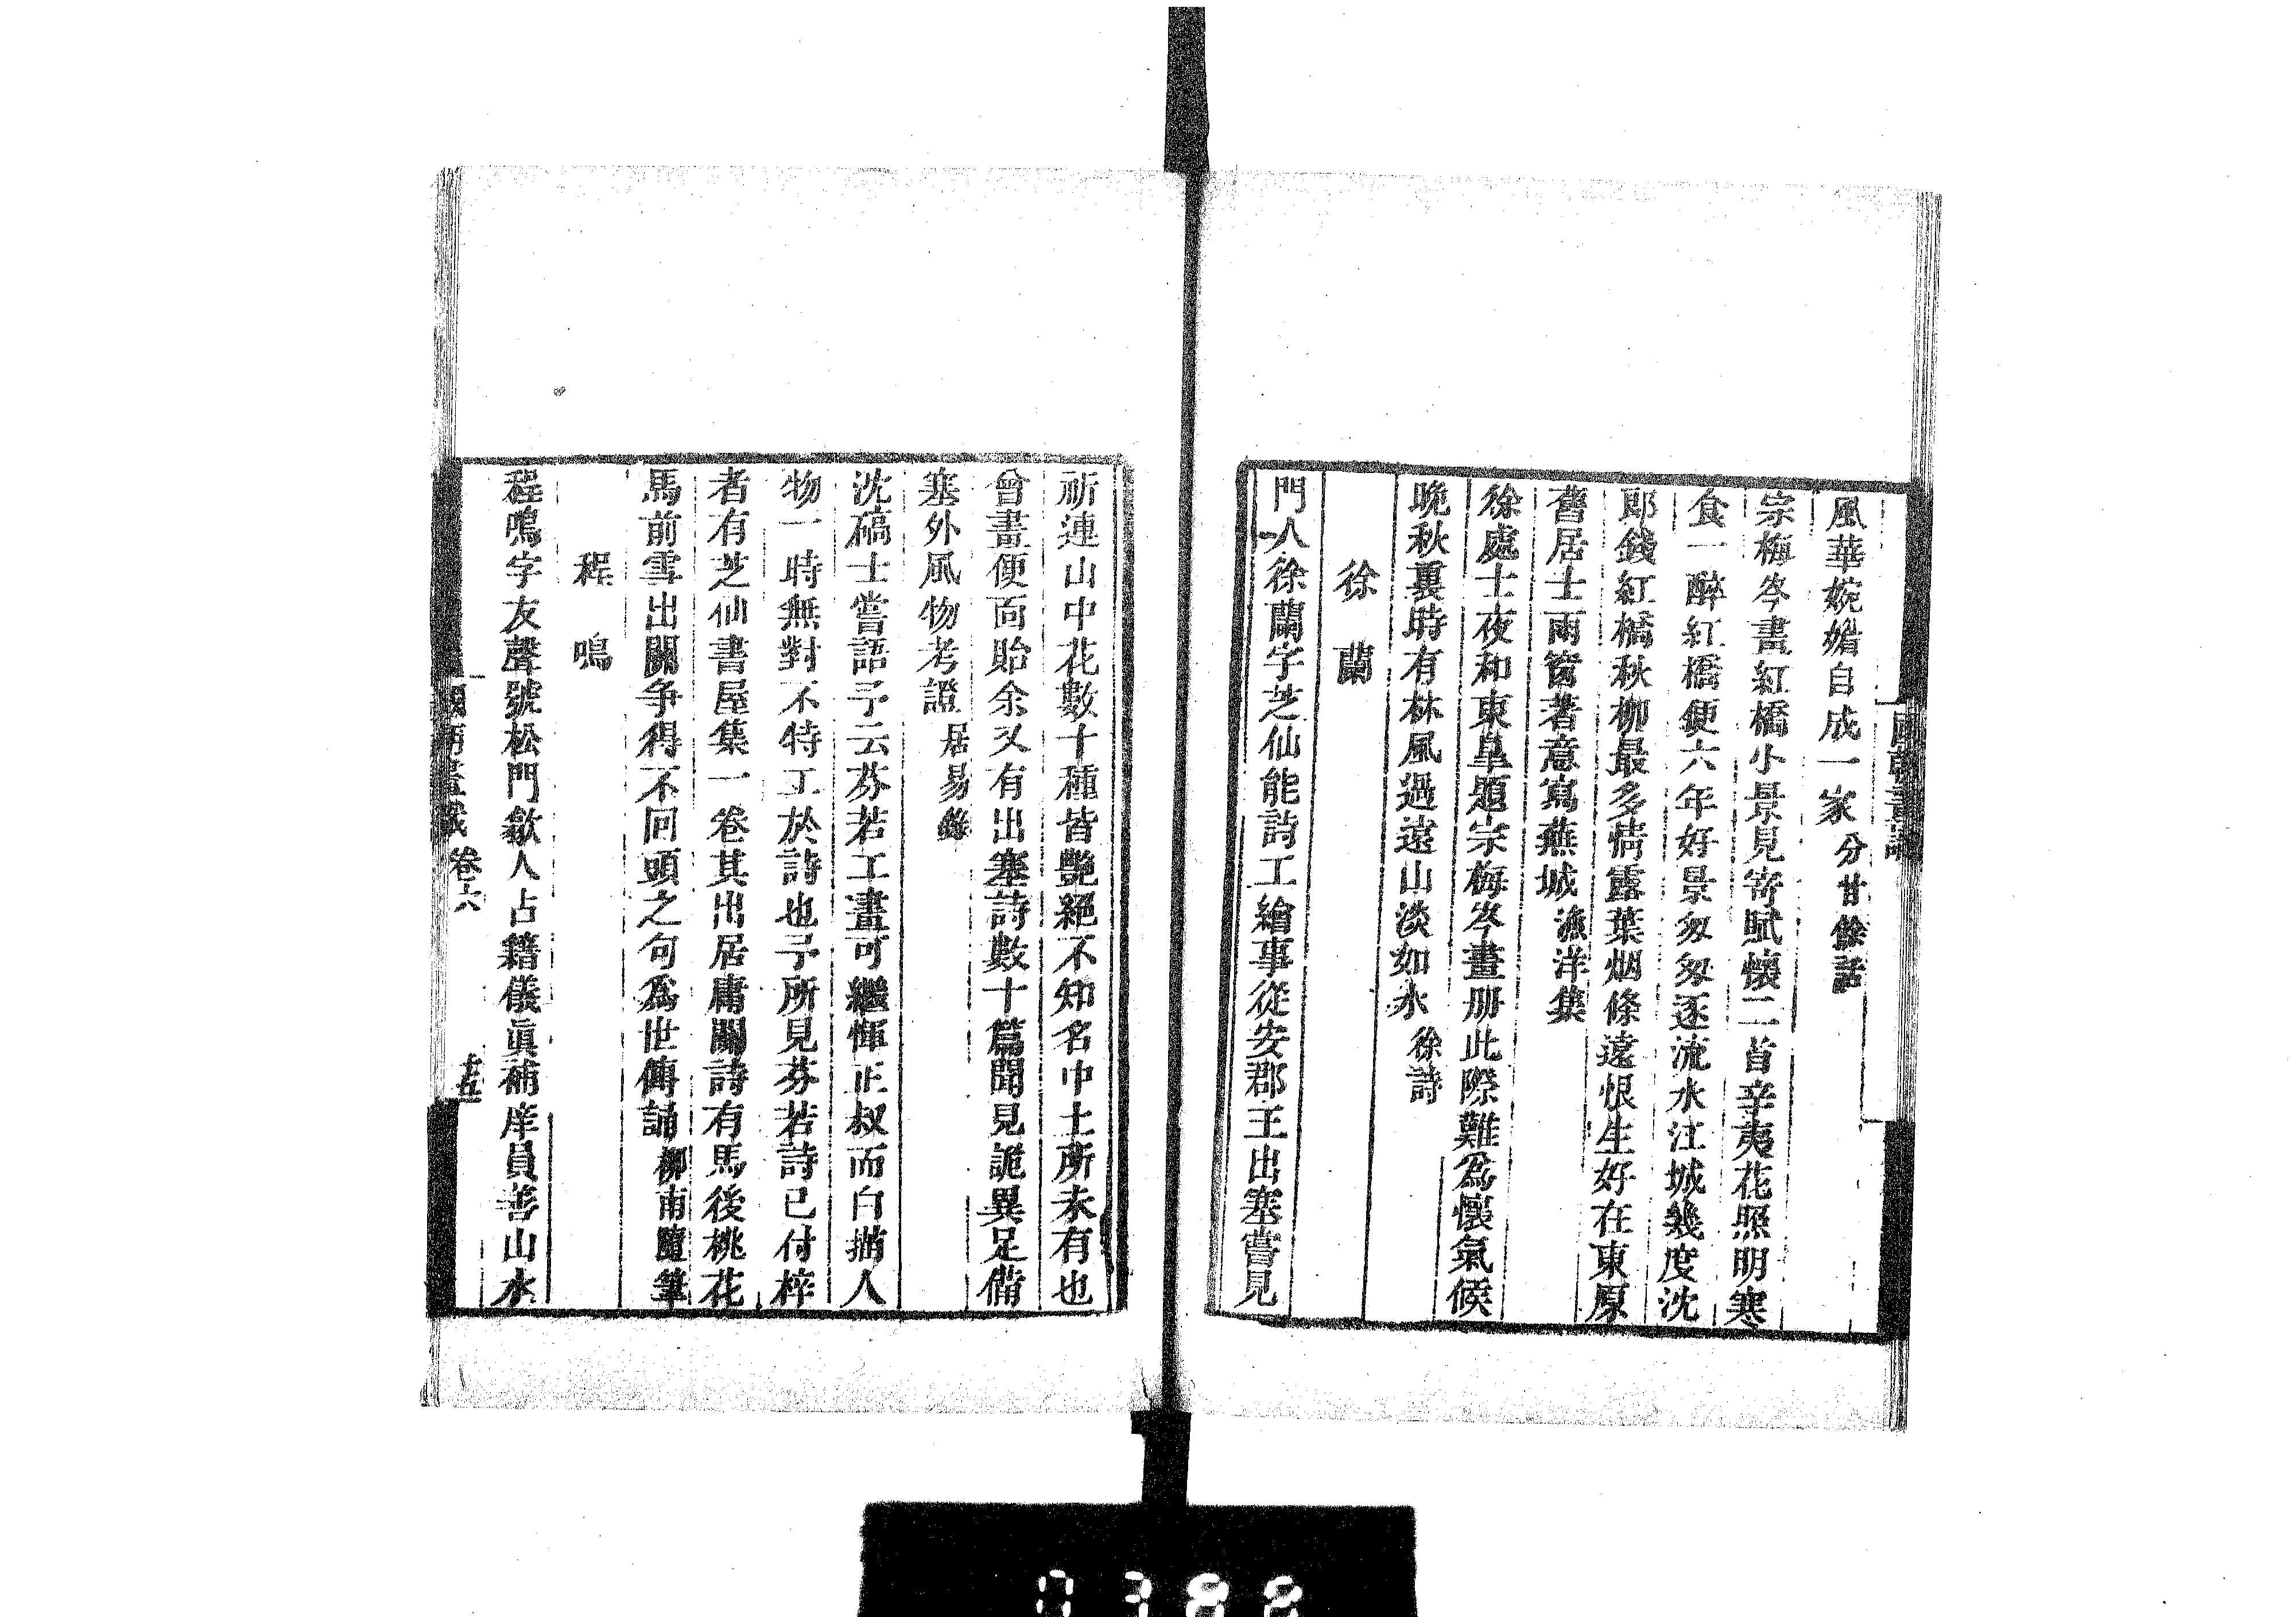 風華婉媚自成一家分甘餘話
宗梅岑畫紅橋小景見寄賦懷二首辛夷花照明寒
食一醉紅橋便六年好景匆匆逐流水江城幾度沈
郎錢紅橋秋柳最多情露葉烟條遠恨生好在東原
舊居士雨窗著意寫蕪城漁洋集
徐處士夜和東臯題宗梅岑畫册此際難爲懷氣候
晚秋裏時有林風過遠山淡如水徐詩
徐蘭
門人徐蘭字芝仙能詩工繪事從安郡王出塞嘗見
祈連山中花數十種皆艷絕不知名中土所未有也
曾畫便面貽余又有出塞詩數十篇聞見詭異足備
塞外風物考證居易錄
沈碻士嘗語予云芬若工畫可繼惲正叔而白描人
物一時無對不特工於詩也予所見芬若詩已付梓
者有芝仙書屋集一卷其出居庸關詩有馬後桃花
馬前雪出關争得不回頭之句爲世傳誦柳南隨筆
程鳴
程鳴字友聲號松門歙人占籍儀眞補庠員善山水
卷六
十五
0388